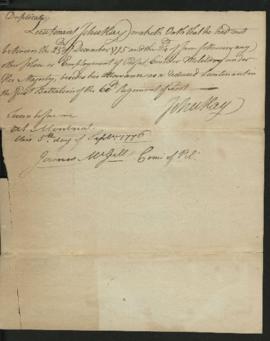 Duplicate
Lieutenant John Hay maketh Oath that he had not
between the 25th of December 1775 and the 24th of June following any
other place or Employment of Profit Civil or Military under
His Majesty, besides his allowance as a Reduced Lieutenant in
the Battalion of the 60th Regiment of Foot
John Hay
Sworn before me
at Montreal
this 5th day of Septr 1776
James McGill Com: of Pe: